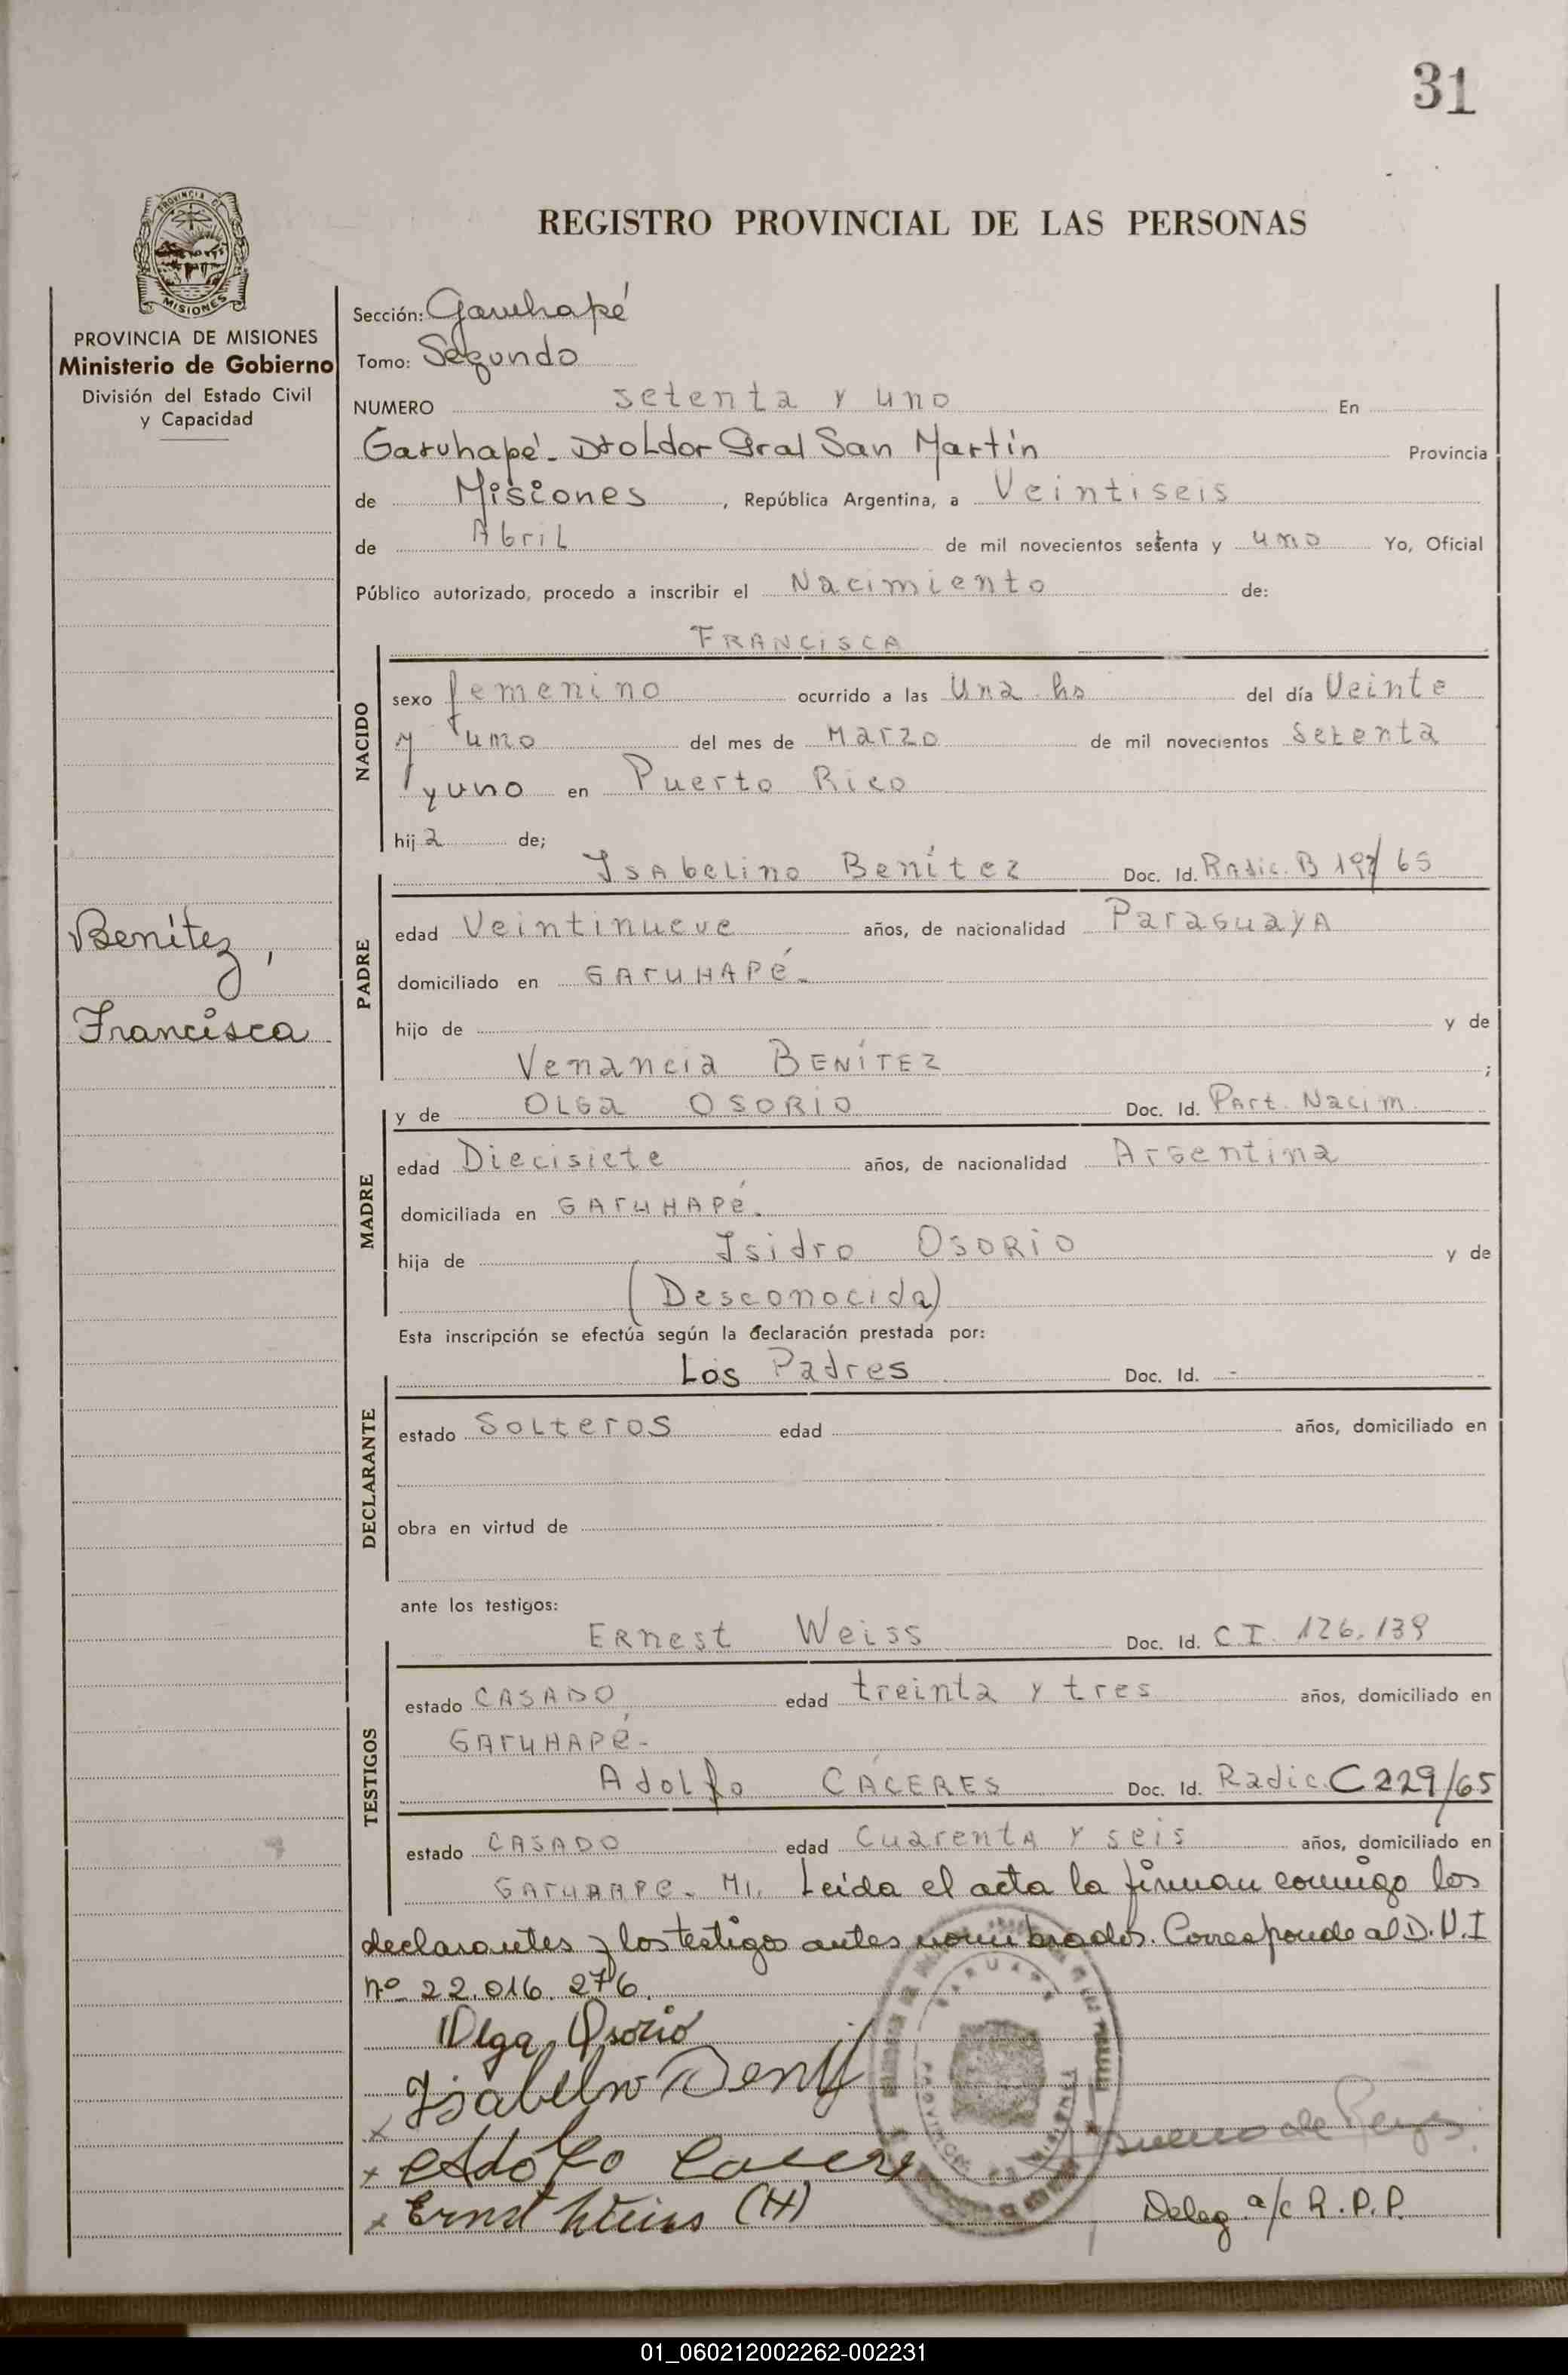 31
PROVINCIA DE
MISIONES
PROVINCIA DE MISIONES
Ministerio de Gobierno
División del Estado Civil
y Capacidad
Benítez,
Francisca
REGISTRO PROVINCIAL DE LAS PERSONAS
Sección: Garuhapé
Tomo: Segundo
NUMERO setenta y uno En
Garuhapé - Dto Ldor Gral San Martín Provincia
de Misiones, República Argentina, a Veintiseis
de Abril de mil novecientos setenta y uno Yo, Oficial
Público autorizado, procedo a inscribir el Nacimiento de:
FRANCISCA
NACIDO
sexo femenino ocurrido a las Una hs del día Veinte
y uno del mes de Marzo de mil novecientos Setenta
y uno en Puerto Rico
hija de;
Isabelino Benítez Doc. Id. Radic. B 197/65
PADRE
edad Veintinueve años, de nacionalidad Paraguaya
domiciliado en GARUHAPé.
hijo de y de
Venancia BENÍTEZ ;
MADRE
y de OLGA OSORIO Doc. Id. Part. Nacim.
edad Diecisiete años, de nacionalidad Argentina
domiciliada en GARUHAPé.
hija de Isidro OSORIO y de
(Desconocida)
Esta inscripción se efectúa según la declaración prestada por:
Los Padres Doc. Id. -
DECLARANTE
estado Solteros edad años, domiciliado en
obra en virtud de
ante los testigos:
ERnest Weiss Doc. Id. C.I. 126.139
TESTIGOS
estado CASADO edad treinta y tres años, domiciliado en
GARUHAPé-
Adolfo CÁCERES Doc. Id. Radic. C 229/65
estado CASADO edad Cuarenta y seis años, domiciliado en
GARUHAPE. Mi. Leída el acta la firman conmigo los
declarantes y los testigos antes nombrados. Corresponde al D.N.I
nº 22.016.276.
Olga Osorio
Isabelino Benit
x Adolfo Cacere
x Ernst Weiss (H)
Deleg a/c R.P.P.
01_060212002262-002231